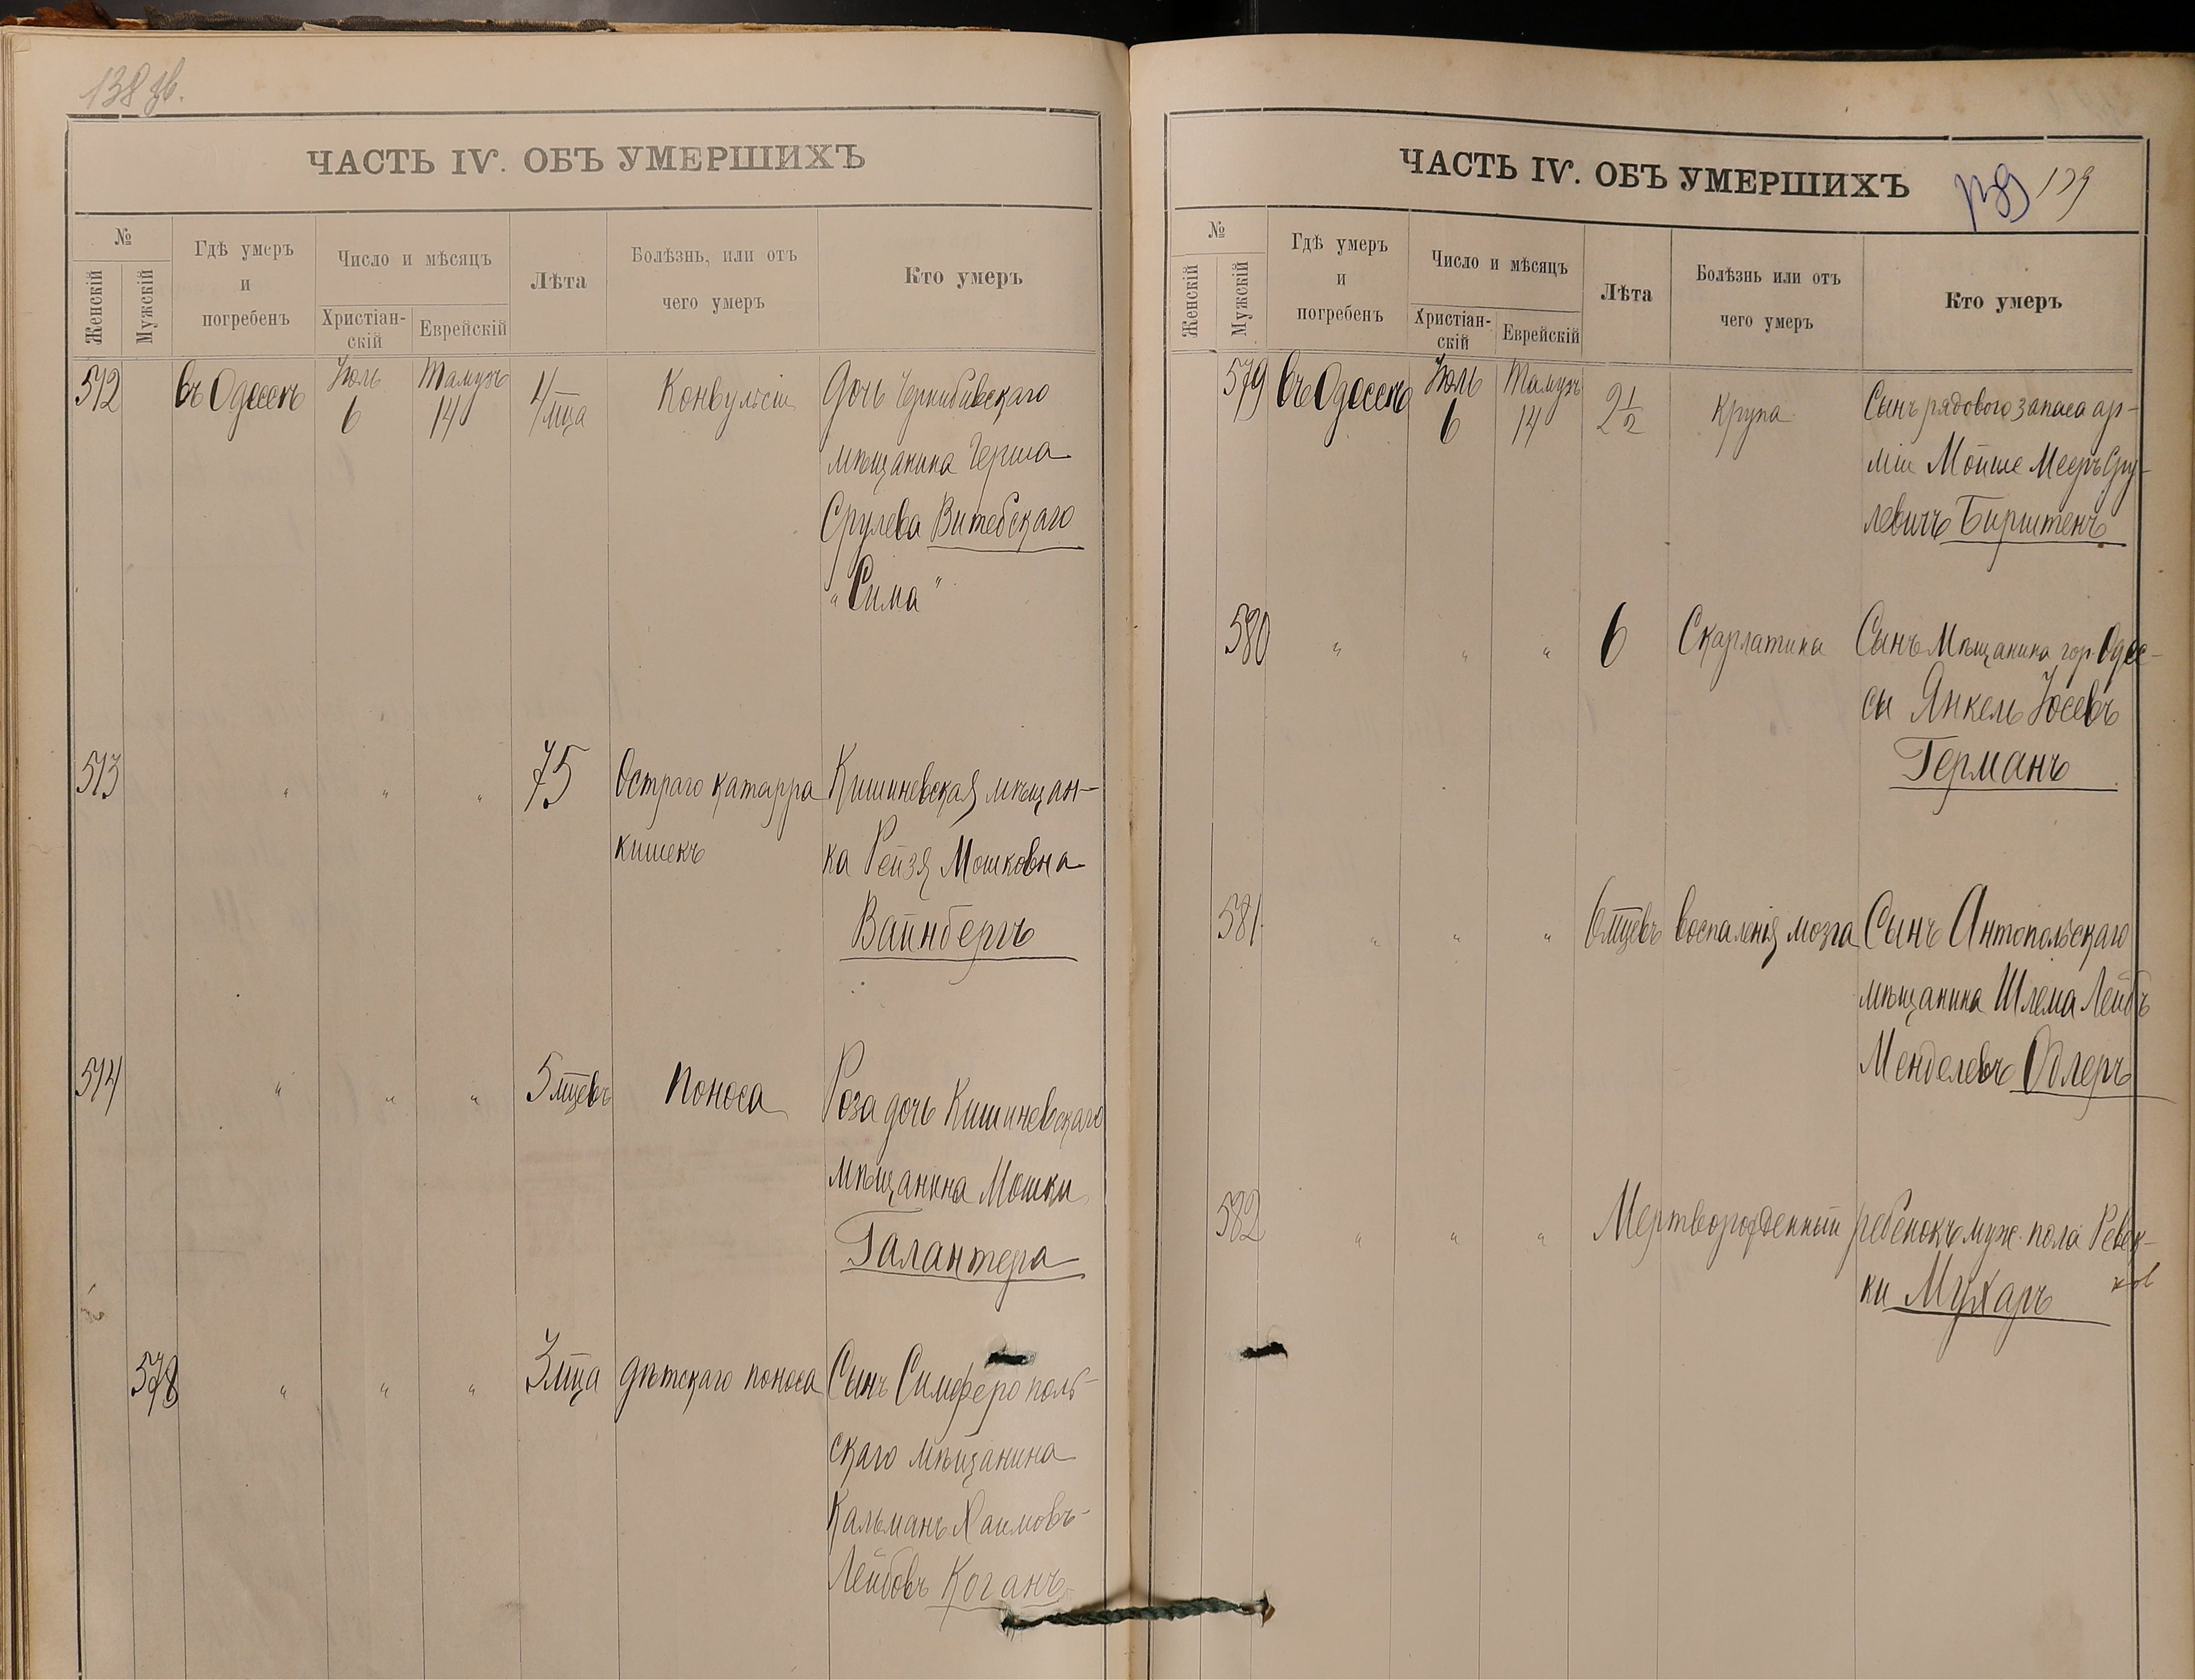 138 зв.
ЧАСТЬ IV. ОБЪ УМЕРШИХЪ
№
Женскій
Мужскій
Гдѣ умеръ
и
погребенъ
Число и мѣсяцъ
Христіан-
скій
Еврейскій
Лѣта
Болѣзнь, или отъ
чего умеръ
Кто умеръ
512 въ Одессѣ Іюль Тамузъ Конвульсіи Дочь
6 14 мца
мѣщанина Герша
Срулева Витебскаго
"Сима"
513 " " " 75 Остраго катарра Кишиневская мѣщан-
кишекъ ка Рейзя Мошковна
Вайнбергъ
514 " " " 5 мцевъ Поноса Роза дочь Кишиневскаго
мѣщанина Мошки
Галантера
578 " " " 3 мца дѣтскаго поноса Сынъ Симферополь-
скаго мѣщанина
Кальманъ Хаимовъ-
Лейбовъ Коганъ
ЧАСТЬ IV. ОБЪ УМЕРШИХЪ
139 139
№
Женскій
Мужскій
Гдѣ умеръ
и
погребенъ
Число и мѣсяцъ
Христіан-
скій
Еврейскій
Лѣта
Болѣзнь или отъ
чего умеръ
Кто умеръ
579 въ Одессѣ Іюль Тамузъ 2 1/2 Крупа Сынъ рядового запаса ар-
6 14 міи Мойше Мееръ Сру-
левичъ Бирштенъ
580 " " " 6 Скарлатина Сынъ Мѣщанина гор. Одес-
сы Янкель Іосевъ
Германъ
581 " " " 6 мцевъ воспаленія мозга Сынъ Антопольскаго
мѣщанина Шлема Лейбъ
Менделевъ Одлеръ
582 " " " Мертворожденный ребенокъ муж. пола Ревек-
ки Мухаръ